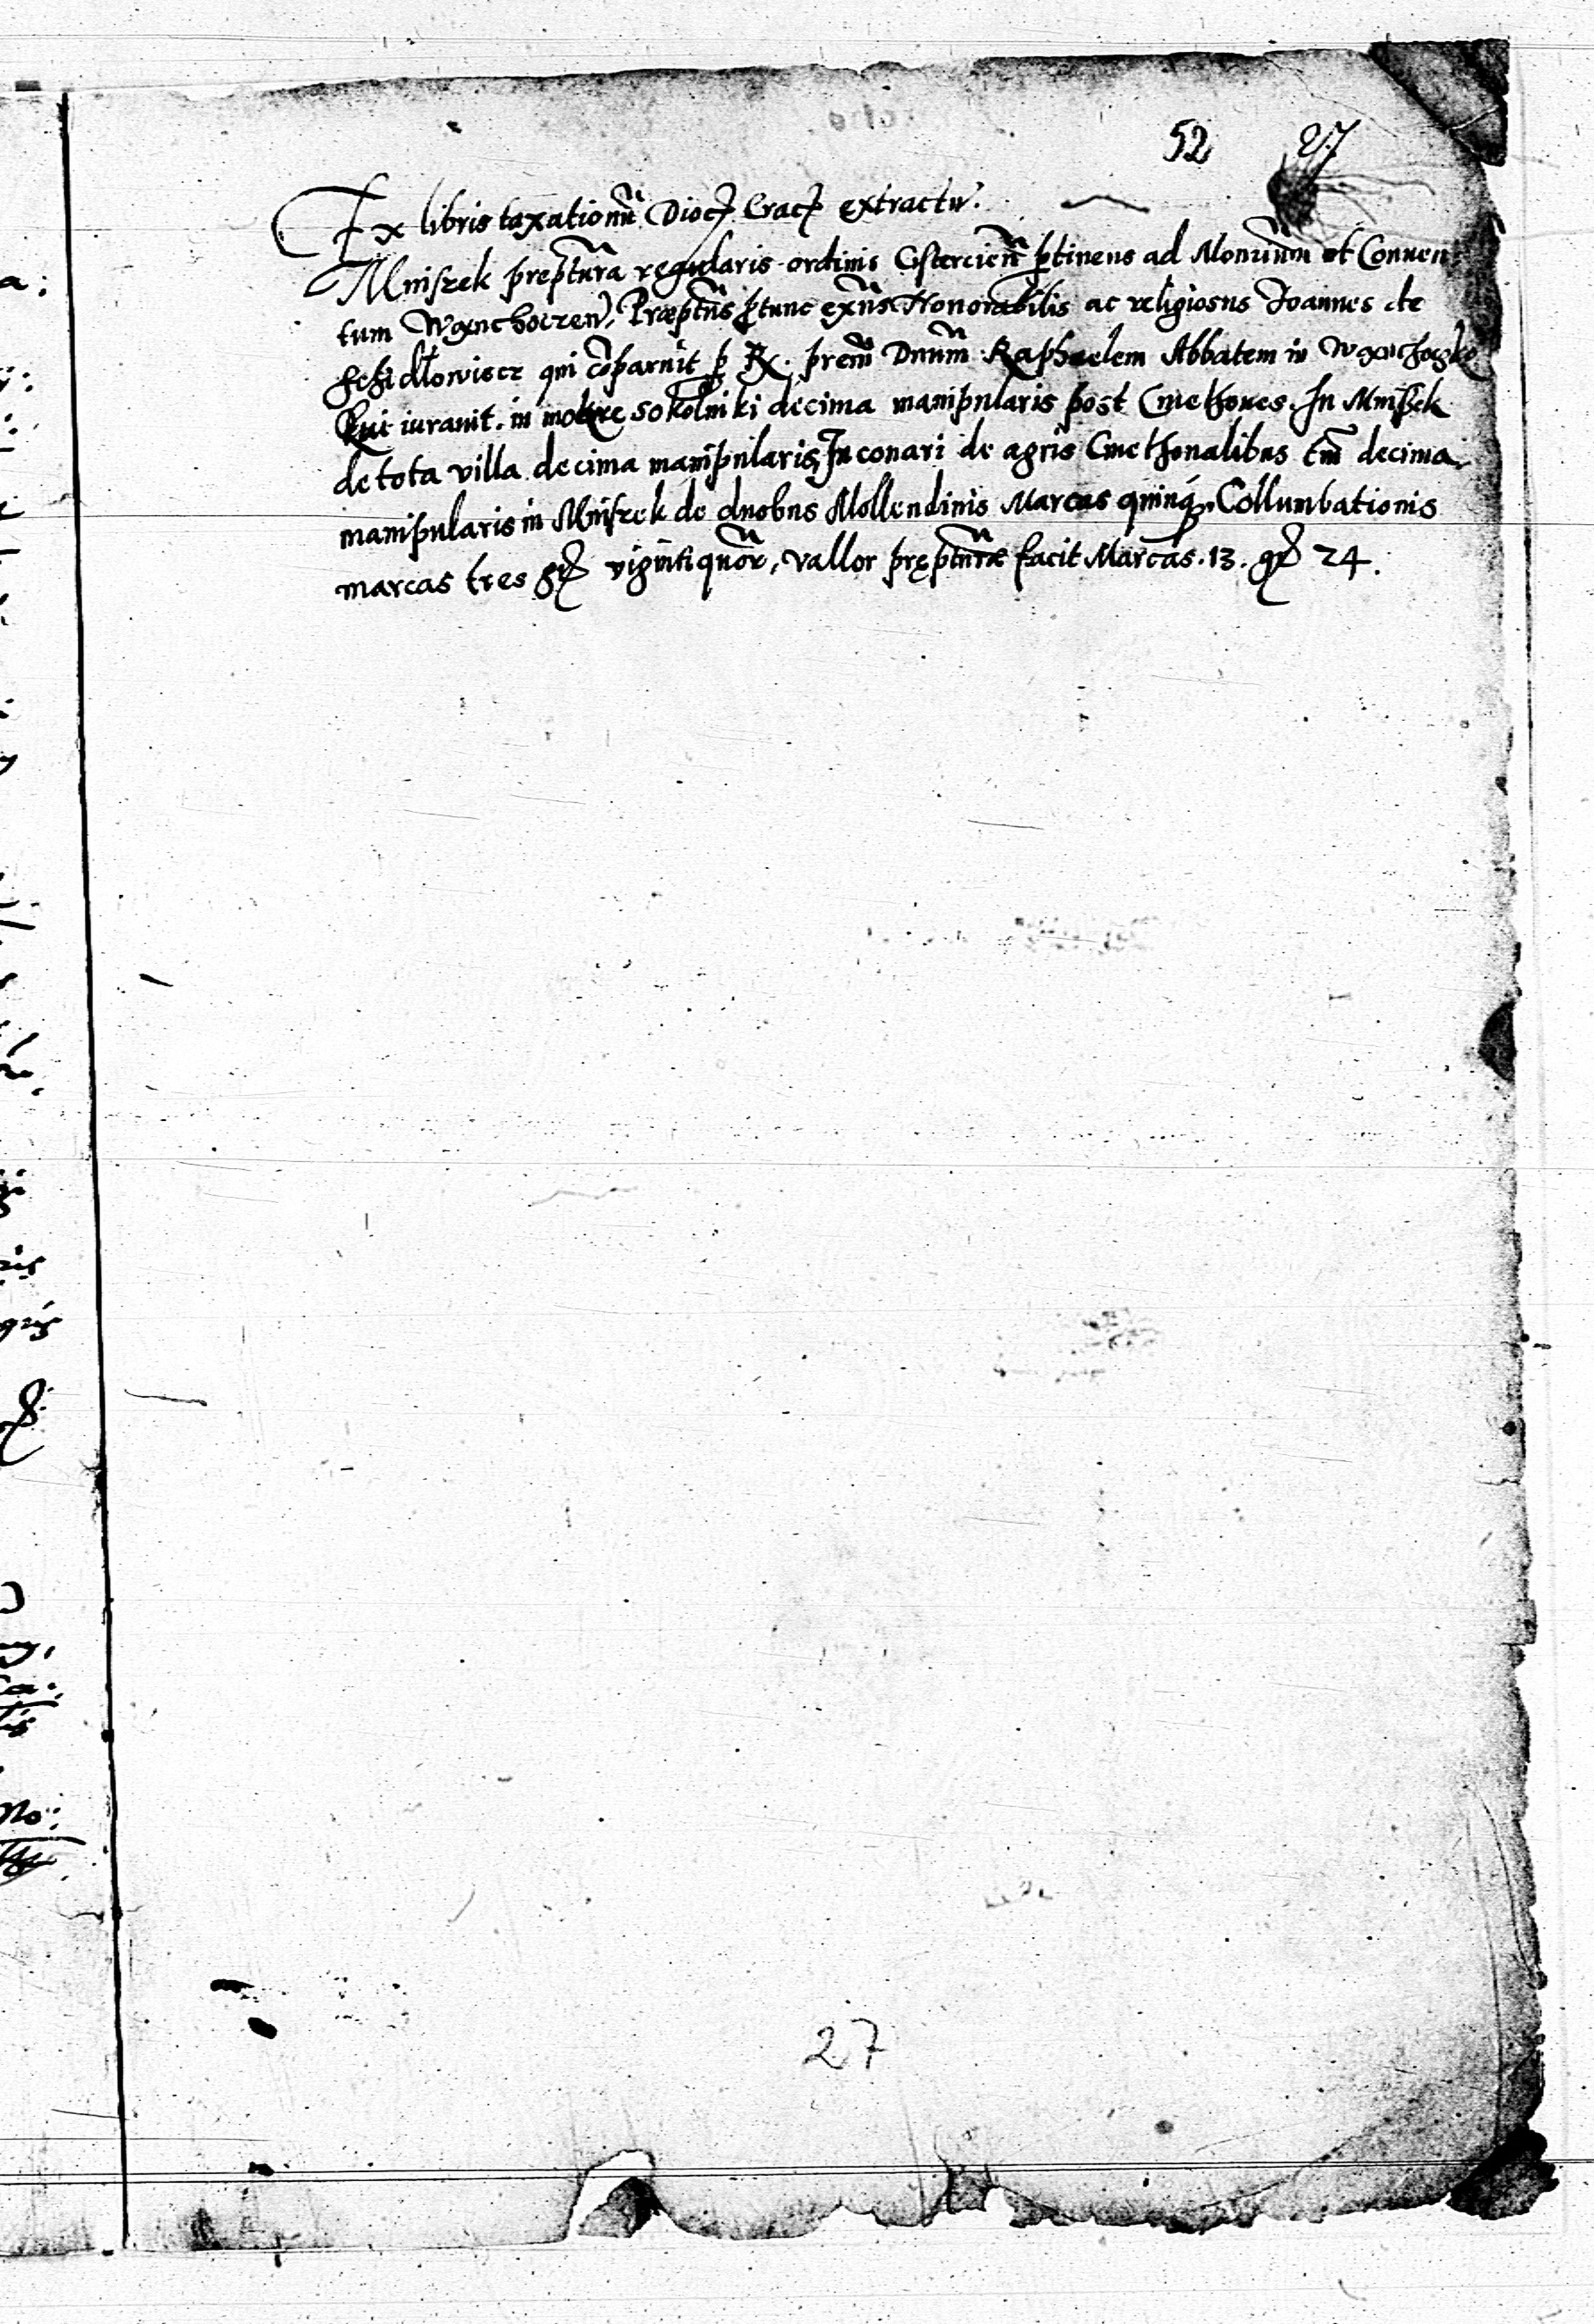 52 27
Ex libris taxationũ Dioc̃ Crac̃ extractũ.
Mniszek prept̃ura regularis ordinis Cistercieñ ptinens ad Monriũm et Conuen
tum Wąnchoczeñ, Præpt̃us ptunc exñs Honorabilis ac religiosus Joannes de
Schidłowiecz qui cõparuit p R. prem̃ Dnũm Raphaelem Abbatem in Wąnchoczko
Qui iurauit. in Sokolniki decima manipularis post Cmethones. In Mniszek
de tota villa decima manipularis, In conari de agris Cmethonalibus tm̃ decima
manipularis in Mniszek de duobus Mollendinis Marcas quinq, Collumbationis
marcas tres gr̃ viginti quõr, vallor pręptũræ facit Marcas. 13. gr̃ 24.
27